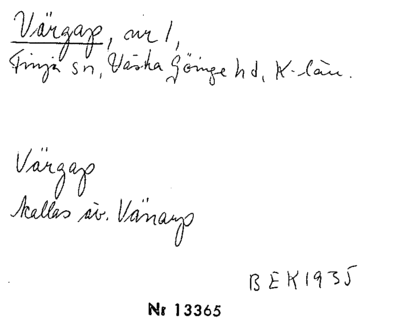 Värgap, nr 1,
Finja sn, Västra Göinge hd, K-län.
Värgap
kallas äv. Vänarp
BEK1935
Nr 13365